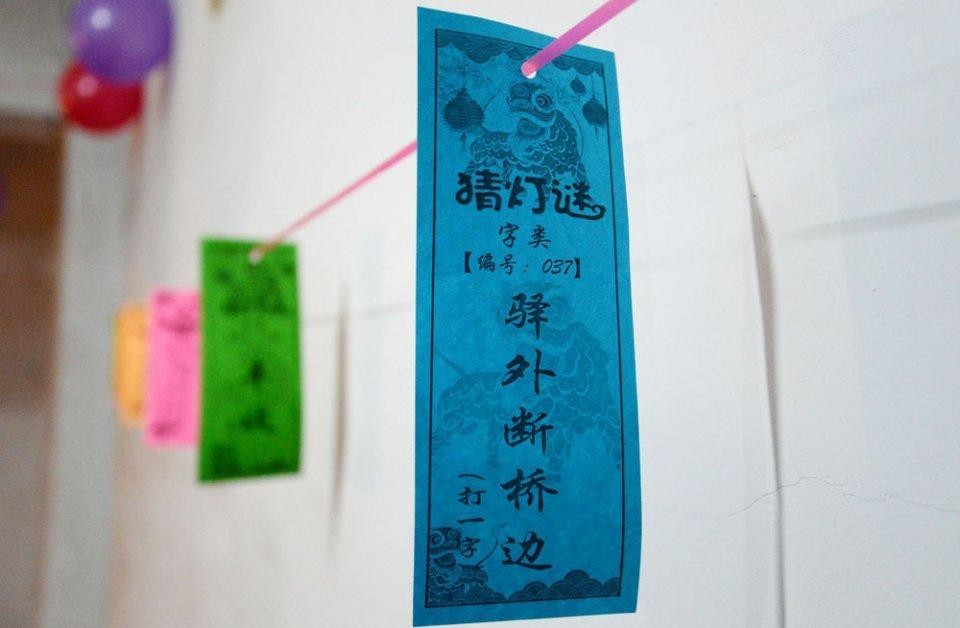 猜灯谜
字类
【编号：037】
驿外断桥边
（打一字）